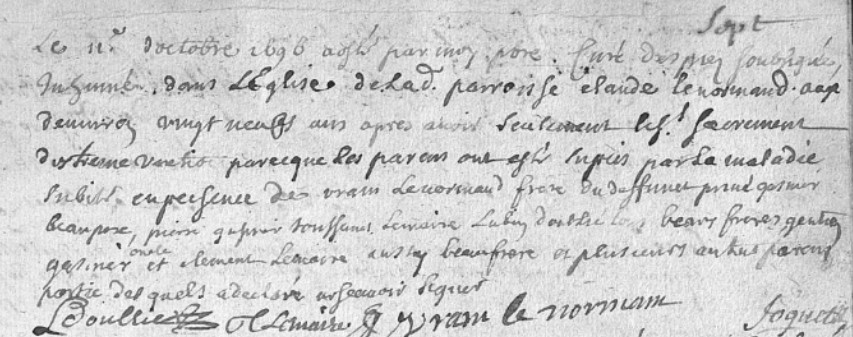 Sept
Le 11e doctobre 1696 a esté par moy pbre Curé des prez soubsigné,
Inhumé dans L'Eglise de lad. parroisse Claude lenormand aagé
denviron vingt neufs ans apres avoir seulement le St sacrement
dextreme unction parceque les parens ont estés surpris par la maladie
subite en presence de vrain Lenormand frere du deffunct gasnier
beaupere, pierre gasnier toussains Lemaire Lubin doullie tous beaux freres
gasnier oncle et clement Lemaire aussy beaufrere et plusieurs autres parens
partie des quels a declaré ne scavoir signer
LDoullie C Lemaire vrain le normain Joquet